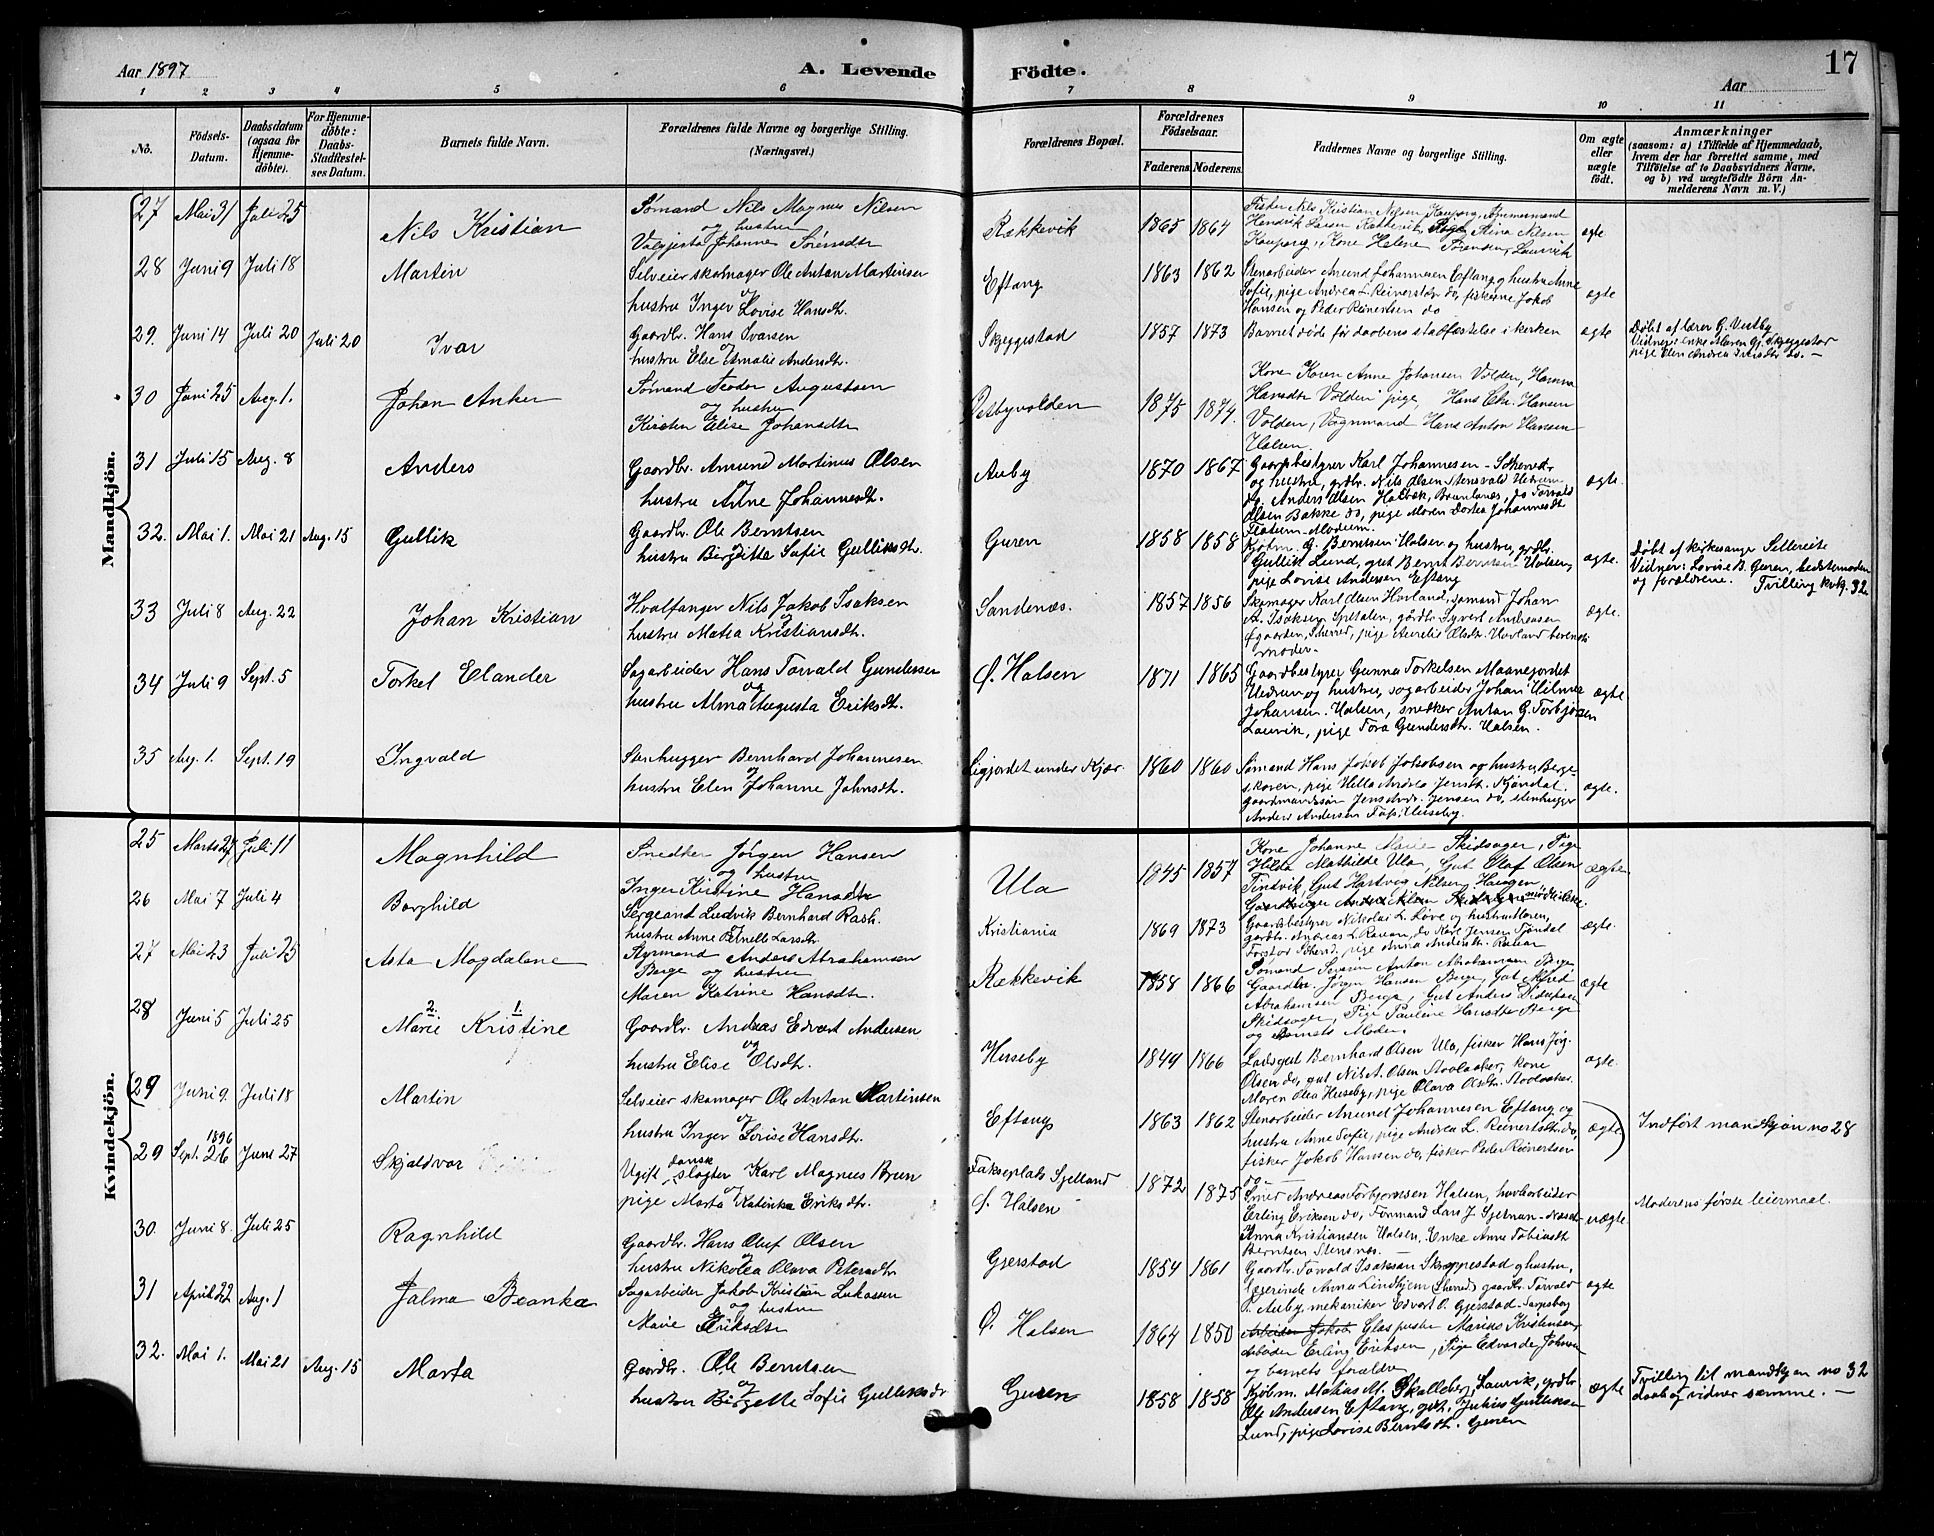 Aar 1897
A. Levende Födte.
17
Aar
1 2 3 4 5 6 7 8 9 10 11
No.
Födsels-Datum.
Daabsdatum (ogsaa for Hjemmedöbte).
For Hjemmedöbte: Daabs-Stadfæstelses Datum.
Barnets fulde Navn.
Forældrenes fulde Navne og borgerlige Stilling. (Næringsvei.)
Forældrenes Bopæl.
Forældrenes Födselsaar.
Faderens. Moderens.
Faddernes Navne og borgerlige Stilling.
Om ægte eller uægte födt.
Anmærkninger
(saasom: a) i Tilfælde af Hjemmedaab,
hvem der har forrettet samme, med
Tilföielse af to Daabsvidners Navne,
og b) ved uægtefödte Börn Anmelderens Navn m. V.)
Mandkjön.
27 Mai 31 Juli 25 Nils Kristian
Sømand Nils Magnus Nilsen
og hustru
Valgjerta Johanne Sørensdtr
Rækkevik 1865 1864
Fisker Nils Kristian Nilsen Kaupang, Tømmermand
Hendrik Larsen Rækkevik, Pige Stina Nilsen
Kaupang, Kone Helene Sørensen, Laurvik
ægte
28 Juni 9 Juli 18 Martin
Selveier skomager Ole Anton Martinsen
og
hustru Inger Lovise Hansdtr.
Eftang 1863 1862
Stenarbeider Amund Johannesen Eftang og hustru Anne
Sofie, pige Andrea L. Reinertsdtr do, fiskerne Jakob
Hansen og Peder Reinertsen do
ægte
29. Juni 14 Juli 20 Juli 20 Ivar
Gaardbr. Hans Ivarsen
og
hustru Else Amalie Andersdtr.
Skjeggestad 1857 1873
Barnet døde før daabens stadfæstelse i kirken
ægte
Døbt af lærer G. Vestby
Vidner: enke Maren Gj. Skjeggestad
pige Elen Andrea do. —
30 Juni 25 Aug. 1. Johan Anker
Sømand Teodor Augustsen
og hustru
Kirsten Elise Johansdtr
Østbyvolden 1875 1874.
Kone Karen Anne Johansen Volden, Hanna
Hansdtr Volden pige, Hans Chr. Hansen
Volden, Vognmand Hans Anton Hansen
Halsen
31 Juli 15 Aug. 8 Anders
Gaardbr. Amund Martinus Olsen
og
hustru Anne Johannesdtr.
Auby 1870 1867
Gaardsbestyrer Karl Johannesen
og hustru, grdbr. Nils Olsen Stensvald Hedrum
do. Anders Olsen Holbæk, Brunlanæs, do Torvald
Olsen Bakke do, pige Maren Dortea Johannesdtr
Modum.
ægte.
32. Mai 1. Mai 21 Aug. 15 Gullik
Gaardbr. Ole Berntsen
og
hustru Birgitte Sofie Gulliksdtr.
Guren 1858 1858
Kjøbm. G. Berntsen Halsen og hustru, grdbr.
Gullik Lund, gut Bernt Berntsen Halsen,
pige Lovise Andersen Eftang
ægte.
Døbt af kirkesanger Sellereite
Vidner: Lovise B. Guren, bedstemoderen
og forældrene. Tvilling kvk. 32
33 Juli 8 Aug. 22 Johan Kristian
Hvalfanger Nils Jakob Isaksen
og
hustru Matea Kristiansdtr.
Sandenæs. 1857 1856
Skomager Karl Olsen Havland, sømand Johan
A. Isaksen Spetalen, gårdbr Syvert Andreasen
pige Aurelie Olsdtr. Havland barnets
moder.
ægte.
34 Juli 9 Sept. 5 Torkel Elander
Sagarbeider Hans Torvald Gundersen
og
hustru Alma Augusta Eriksdtr.
Ø. Halsen 1871 1865
Gaardbestyrer Gunna Torkelsen Maanejordet
Hedrum og hustru, sagarbeider Johan Hilmar
Johansen. Halsen, snedker Anton G. Torbjørnsen
Laurvik, pige Tora Gundersdtr. Halsen.
ægte
35 Aug. 1. Sept. 19 Ingvald
Stenhugger Bernhard Johannesen
og
hustru Elen Johanne Johnsdtr.
Ligjordet under Kjær 1860 1860
Sømand Hans Jakob Jakobsen og hustru Berge-
skoven, pige Hella Andrea Jensdtr. Kjøndal.
gaardmandssøn Jens Andr. Jensen do, stenhugger
Anders Andersen Huseby.
ægte.
Kvindekjön.
25 Marts 24 Juli 11 Magnhild
Snedker Jørgen Hansen
og hustru
Inger Kirstine Hansdtr
Ula 1845 1857
Kone Johanne Marie Skidsager, Pige
Hilda Mathilde Ula, Gut Olaf Olsen
Tindvik, Gut Hartvig Nilsen Haugen
ægte
26 Mai 7 Juli 4 Borghild
Sergeant Ludvik Bernhard Rash.
hustru Anne Petnelle Larsdtr.
Kristiania 1869 1873
Gaardsbestyrer Nikolai L. Løve og hustru Maren,
gårdbr. Andreas L. Rauan, do Karl Jensen Tandal
pige Anna Andersdtr. Rauan
ægte.
27 Mai 23 Juli 25 Asta Magdalene
Styrmand Anders Abrahamsen
Berge og hustru
Maren Katrine Hansdtr.
Rækkevik 1858 1866
Sømand Severin Anton Abrahamsen Berge
Gaardbr. Jørgen Hansen Berge, Gut Alfred
Abrahamsen Berge, Gut Anders Didriksen
Skidsager, Pige Pauline Hansdtr Berge
og Barnets Moder.
ægte
28 Juni 5 Juli 25 2 1 Marie Kristine
Gaardbr. Andreas Edvart Andersen
og
hustru Elise Olsdtr.
Huseby 1849 1866
Ladsgut Bernhard Olsen Ula, fisker Hans Jørg.
Olsen do, gut Nils A. Olsen Stolaaker, kone
Maren Olea Huseby, pige Olava Olsdtr. Stolaaker.
ægte
(29 Juni 9. Juli 18 Martin
Selveier skomager Ole Anton Martinsen
og
hustru Inger Lovise Hansdtr.
Eftang 1863 1862
Stenarbeider Amund Johannesen Eftang og
hustru Anne Sofie, pige Andrea L. Reinertsdtr. do,
fisker Jakob Hansen do, fisker Peder Reinertsen
do —
ægte)
Indført mandkjøn no 28
29 1896 Sept. 26 June 27 Skjaldvar
Ugift dansk slagter Karl Magnus Brun
og
pige Marta Katinka Eriksdtr.
Fakseplads Sjelland
Ø. Halsen
1872 1875
Smed Andreas Torbjørnsen Halsen, havlarbeider
Erling Eriksen do, Formand Lars J. Stjernan
Anna Kristiansen Halsen, Enke Anne Tobiasdtr
Berntsen Stensnæs. —
uægte
Moderens første leiermaal.
30. Juni 8. Juli 25 Ragnhild
Gaardbr. Hans Oluf Olsen
og
hustru Nikolea Olava Petersdtr
Gjerstad 1854 1861
Gaardbr. Torvald Isaksen Skreppestad og hustru,
lægerinde Anna Lindhjem, gaardbr. Torvald
O. Auby, mekaniker Edvart O. Gjerstad. Sarpsborg
ægte
31 April 22 Aug. 1 Jalma Beanka
Sagarbeider Jakob Kristian Lukasen
og hustru
Marie Eriksdtr
Ø. Halsen 1864 1850
Arbeider Jakob Glaspuster Marius Kristensen,
Arbeider Erling Eriksen, Pige Edvarda Johnsen
og barnets forældre
32. Mai 1. Mai 21 Aug. 15 Marta
Gaardbr. Ole Berntsen
og
hustru Birgette Sofie Gulliksdtr
Guren 1858 1858
Kjøbm. Matias M. Skalleberg, Laurvik, grdbr.
Ole Andersen Eftang, gut. Julius Gulliksen
Lund, pige Lovise Berntsdtr. Guren
ægte
Tvilling til mandkjøn no 32
daab og vidner samme. —